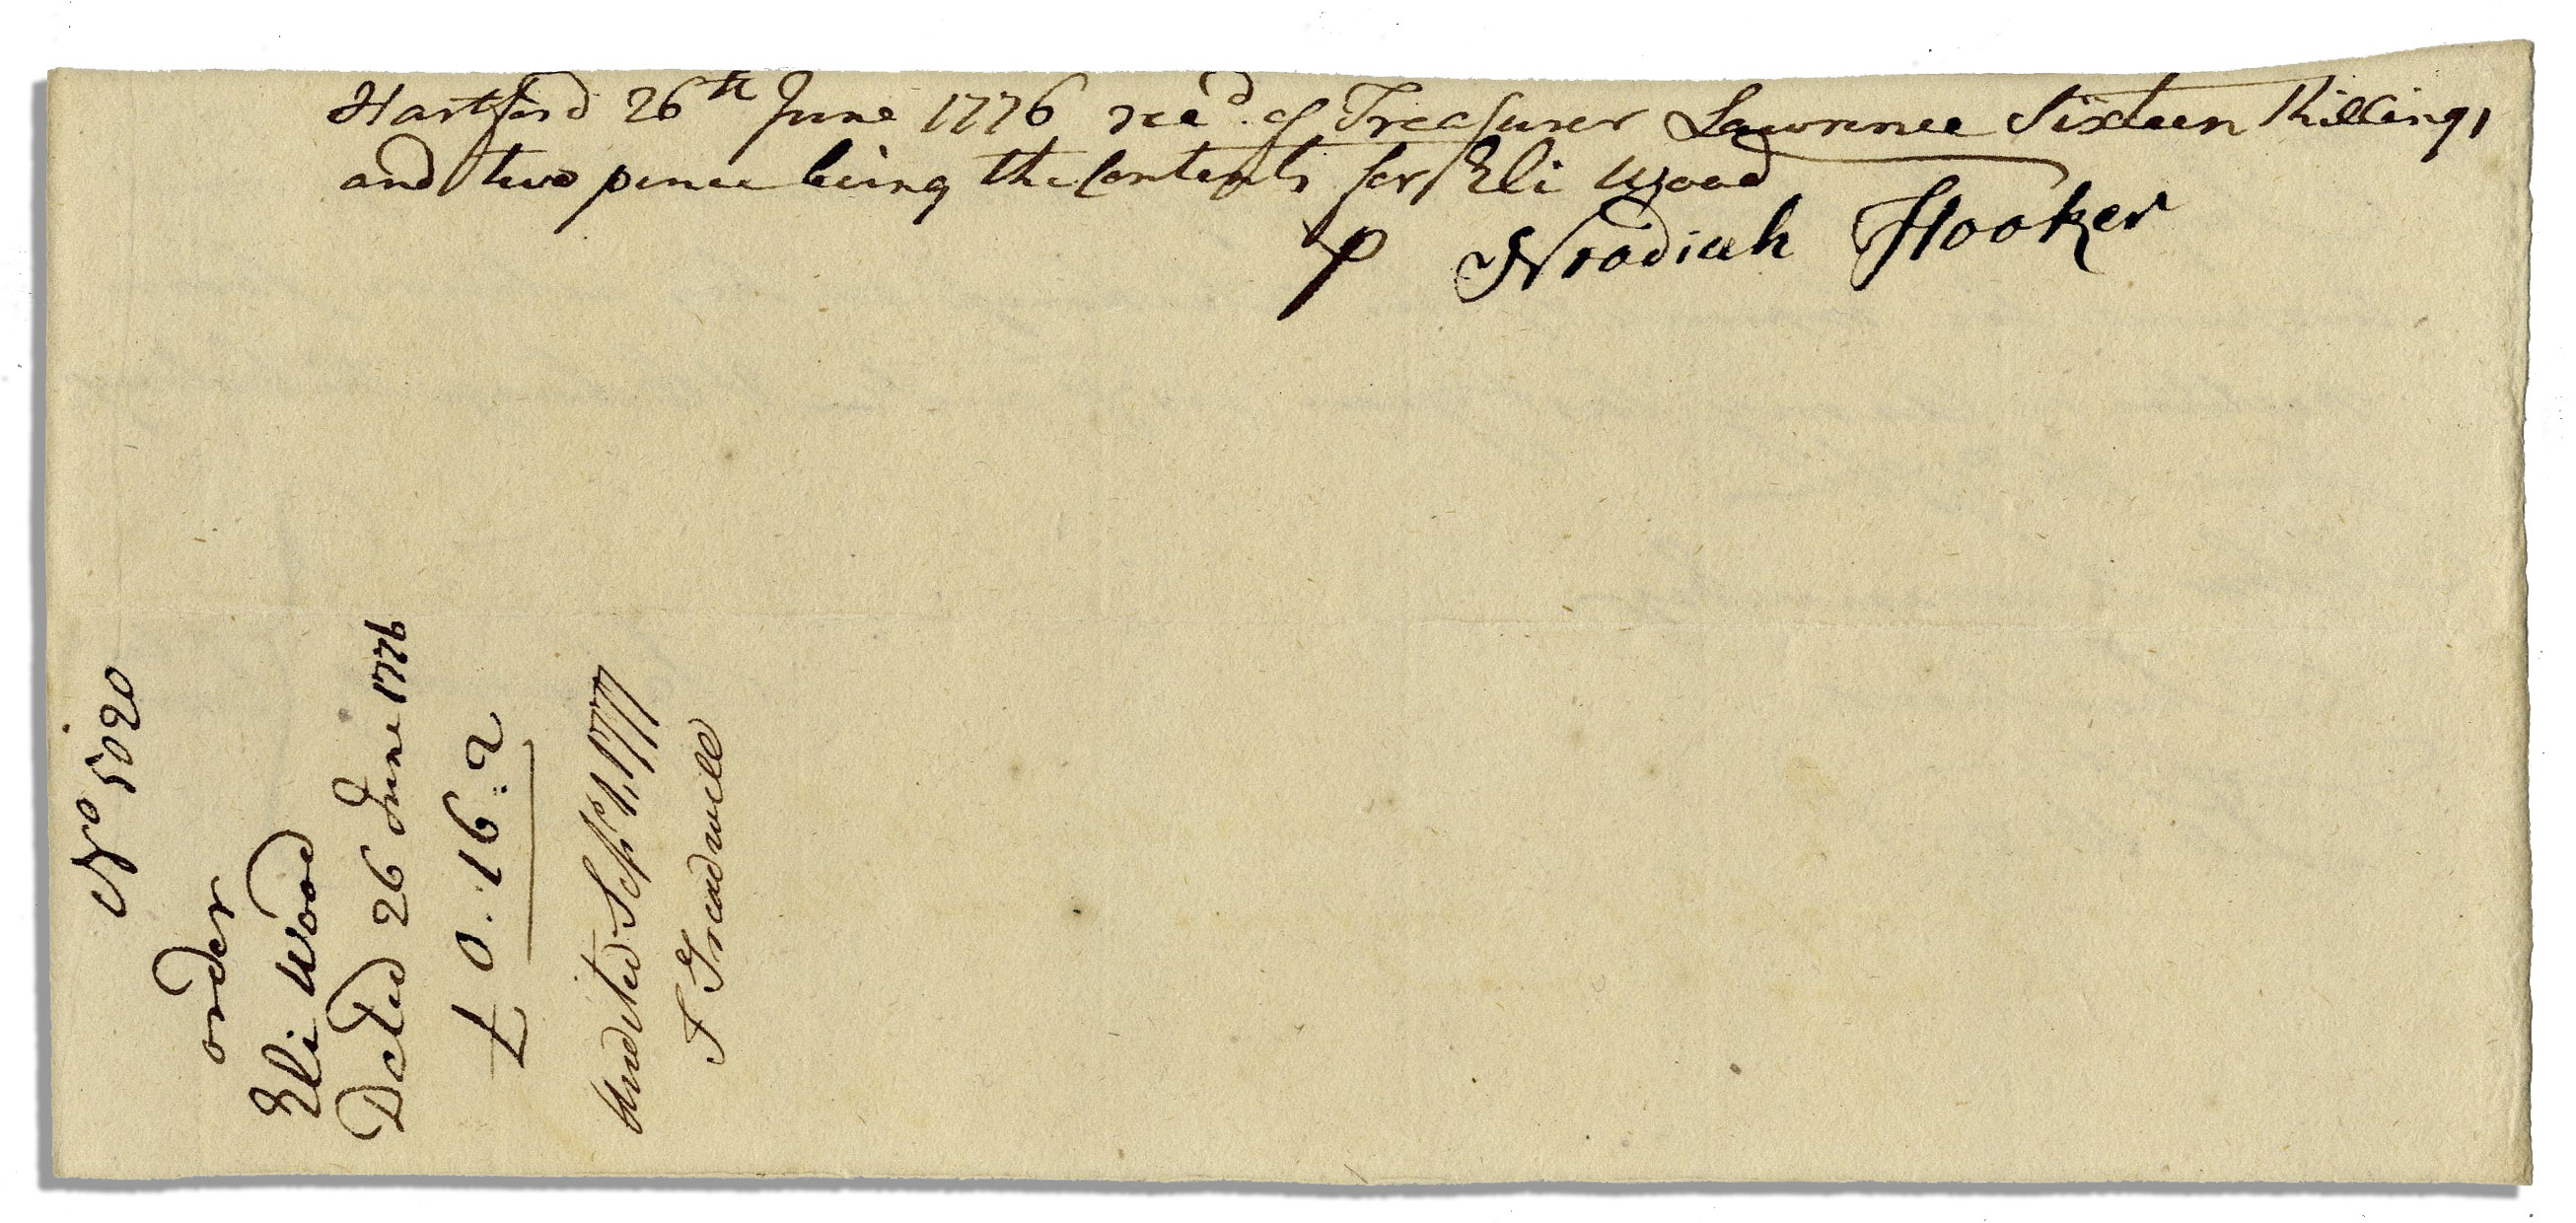 Hartford 26th June 1776 recd. of Treasurer Lawrence Sixteen Shillings
and two pence being the Contents for Eli Wood
P Noadiah Hooker
No 5020
order
Eli Wood
Dated 26 June 1776
£ 0.16:2
Audited Sept. 1, 1777
J Treadwell